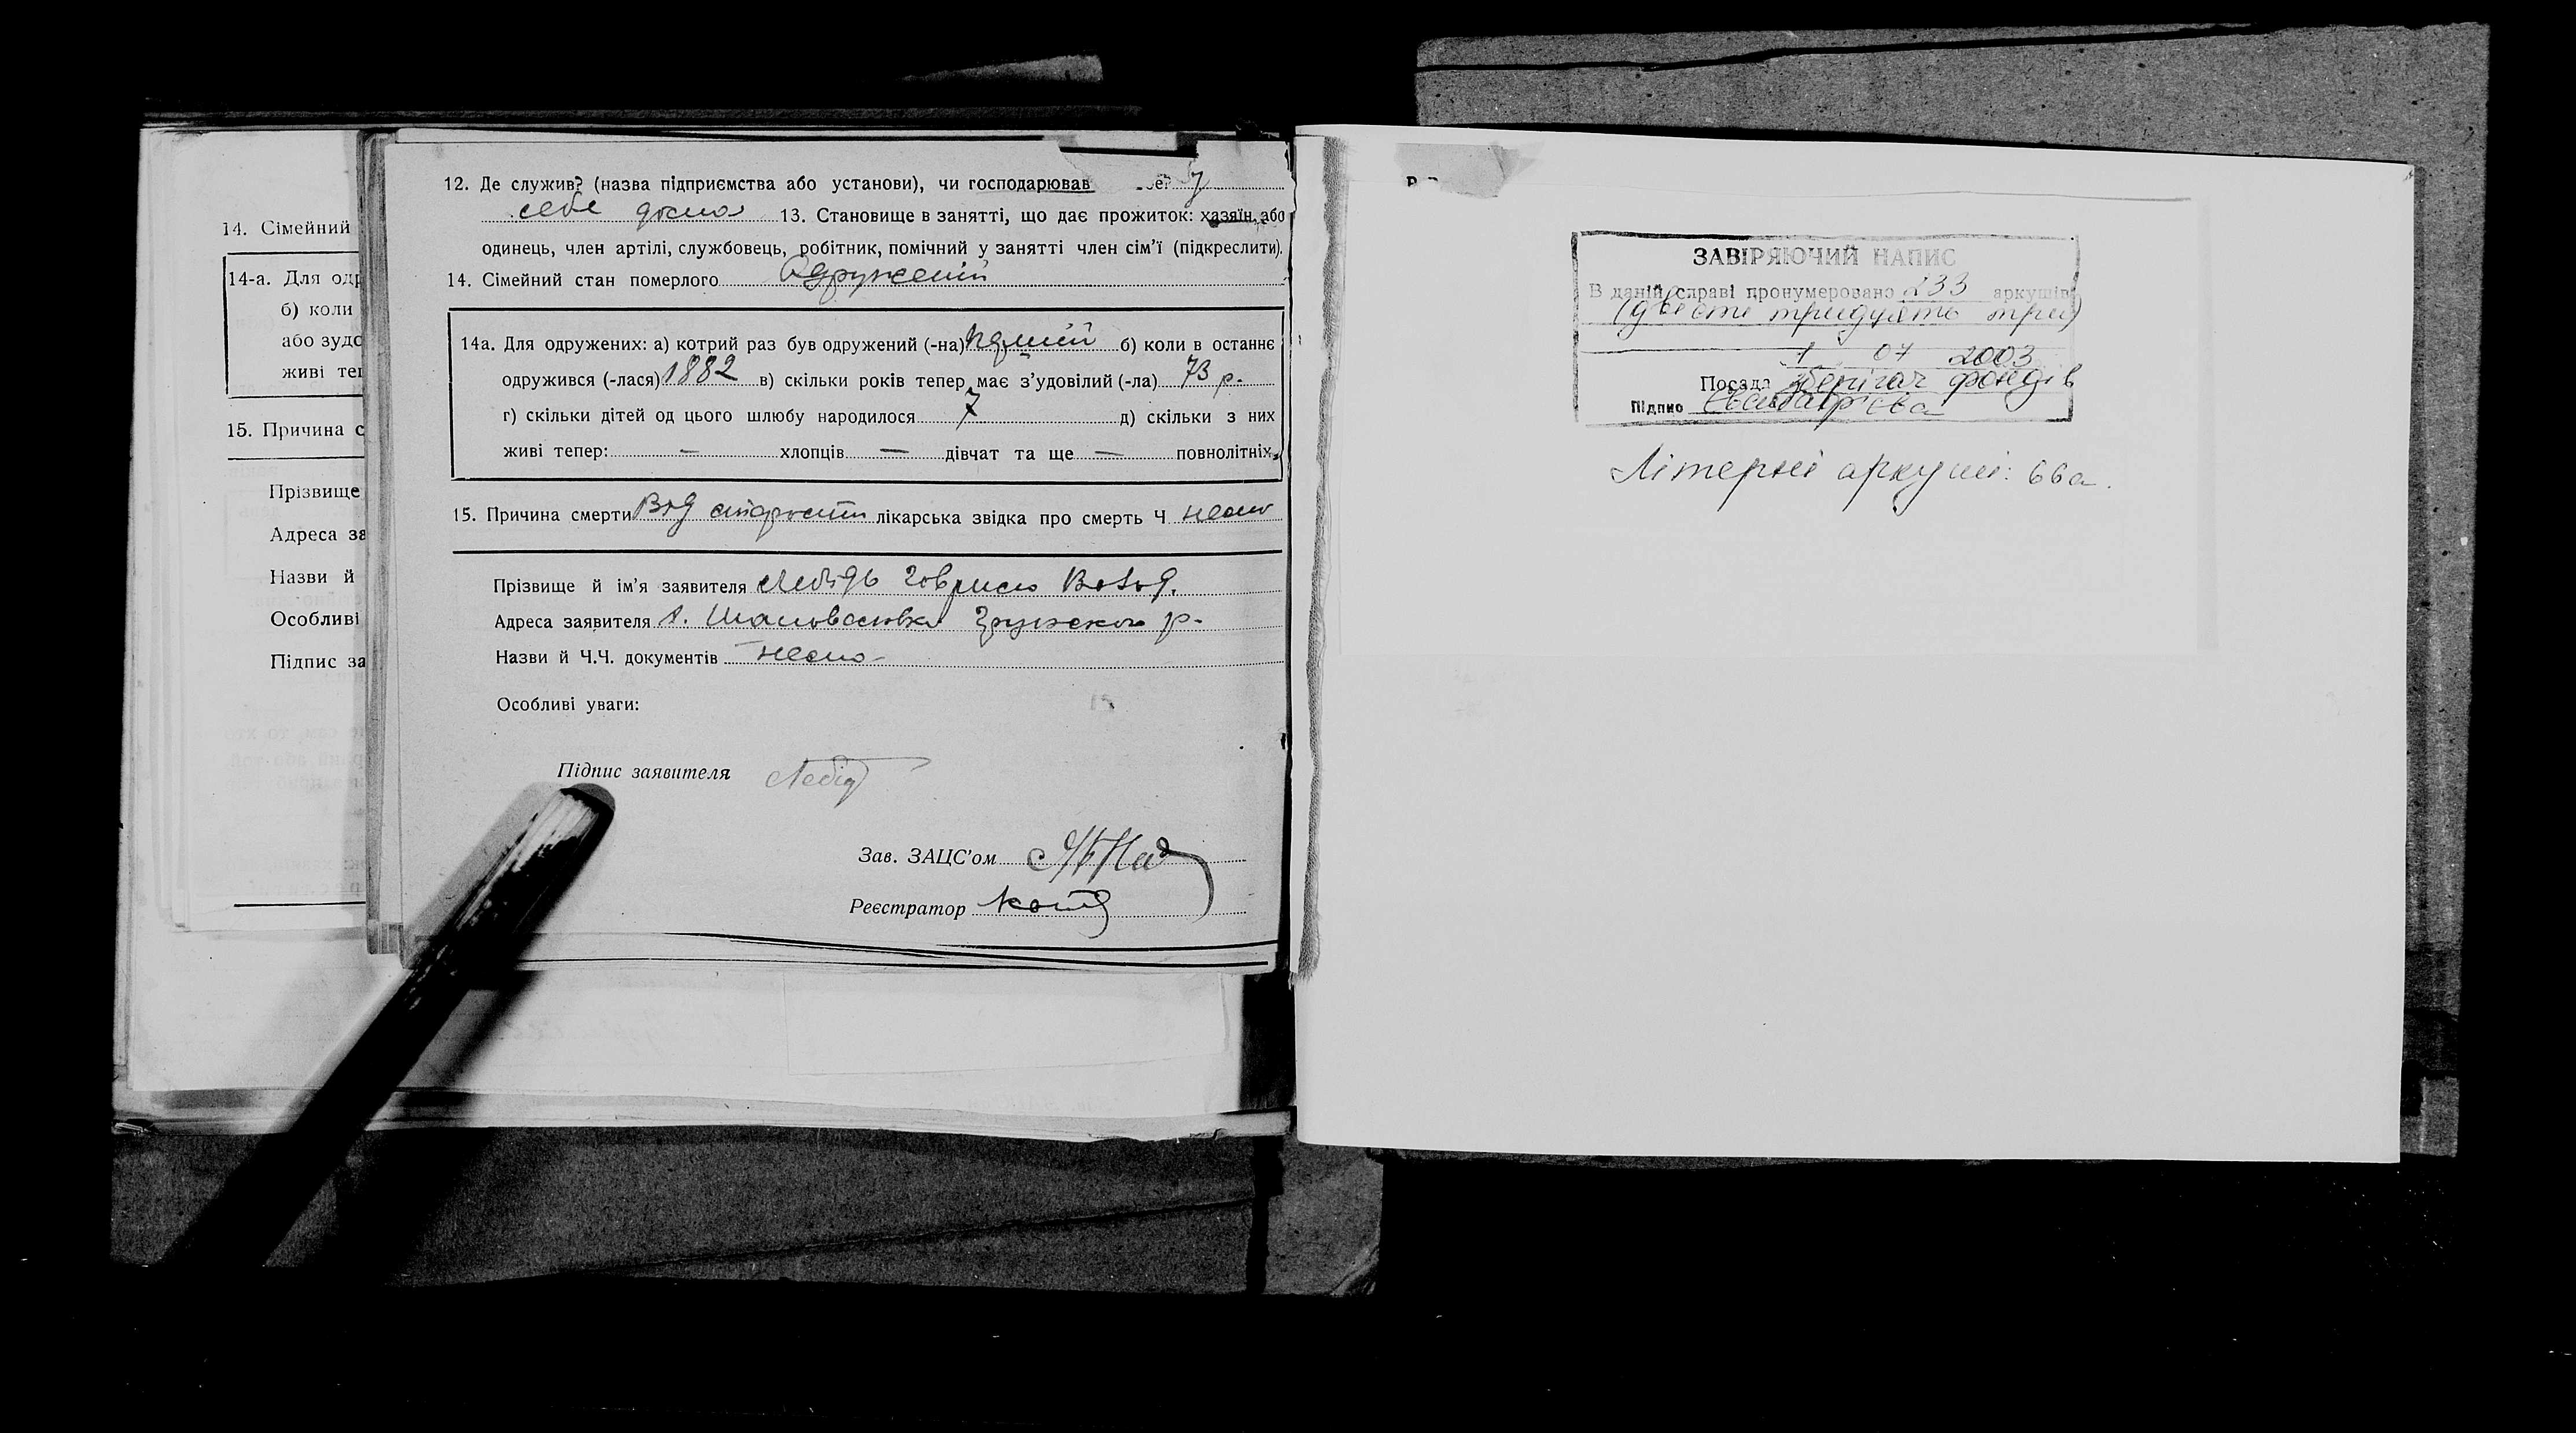 14. Сімейний
14-а. Для одр
б) коли
або зудо
живі те
15. Причина с
Прізвище
Адреса за
Назви й
Особливі
Підпис за
12. Де служив? (назва підприємства або установи), чи господарював у
себе дома 13. Становище в занятті, що дає прожиток: хазяїн, або
одинець, член артілі, службовець, робітник, помічний у занятті член сім’ї (підкреслити).
14. Сімейний стан померлого Одружений
14а. Для одружених: а) котрий раз був одружений (-на) б) коли в останнє
одружився (-лася) 1882 в) скільки років тепер має з’удовілий (-ла) 73 р.
г) скільки дітей од цього шлюбу народилося 7 д) скільки з них
живі тепер: — хлопців — дівчат та ще — повнолітніх.
15. Причина смерти Від старости лікарська звідка про смерть Ч немо
Прізвище й ім’я заявителя Лебідь Волод.
Адреса заявителя р-
Назви й Ч.Ч. документів немо-
Особливі уваги:
Підпис заявителя Лебідь
Зав. ЗАЦС’ом
Реєстратор
ЗАВІРЯЮЧИЙ НАПИС
В даній справі пронумеровано 233 аркушів
(двісті тридцять три)
1 07 2003
Посада зберігач фондів
Підпис
Літерні аркуші: 66а.